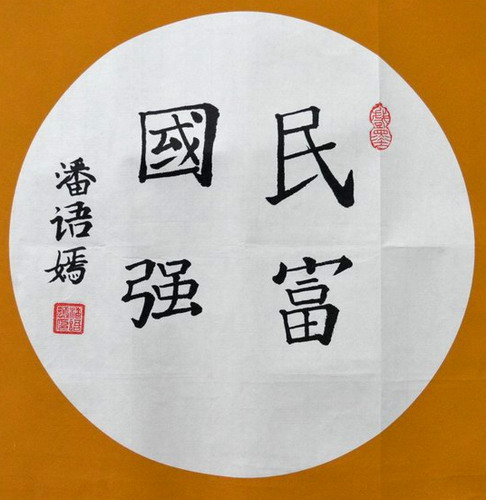 民富
國强
潘语嫣